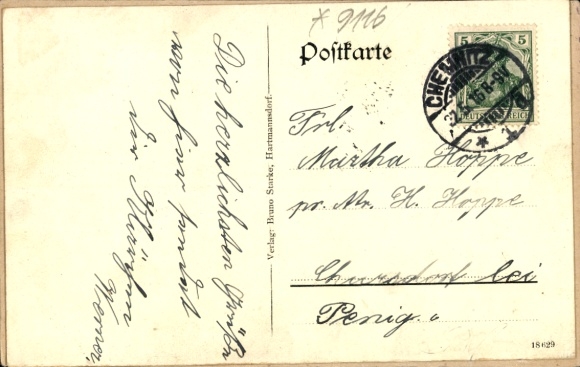 * 9116
Postkarte
5 5
DEUTSCHES REICH
CHEMNITZ
Frl.
Martha Hoppe
pr. Adr. H. Hoppe
Chursdorf bei
Penig.
18629
Verlag: Bruno Starke, Hartmannsdorf.
Die herzlichsten Grüße
von hier sendet
Dir
Werner